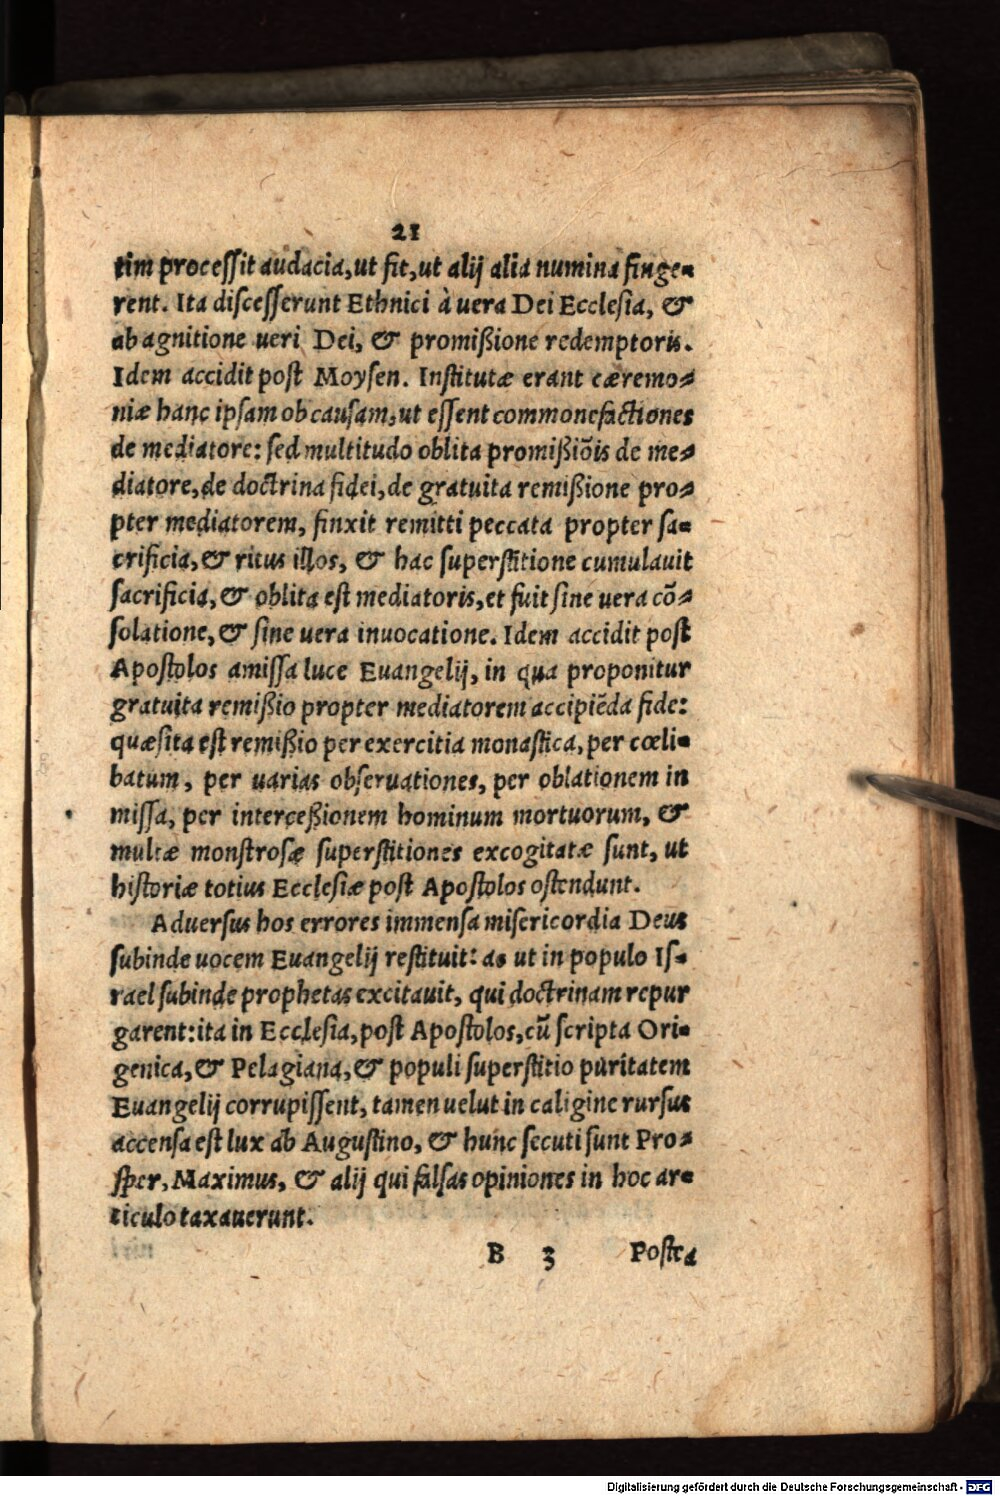 21
tim processit audacia, ut fit, ut alij alia numina finge-
rent. Ita discesserunt Ethnici à uera Dei Ecclesia, &
ab agnitione ueri Dei, & promißione redemptoris.
Idem accidit post Moysen. Institutæ erant cæremo-
niæ hanc ipsam ob causam, ut essent commonefactiones
de mediatore: sed multitudo oblita promißiõis de me-
diatore, de doctrina fidei, de gratuita remißione pro-
pter mediatorem, finxit remitti peccata propter sa-
crificia, & ritus illos, & hac superstitione cumulauit
sacrificia, & oblita est mediatoris, et fuit sine uera cõ-
solatione, & sine uera inuocatione. Idem accidit post
Apostolos amissa luce Euangelij, in qua proponitur
gratuita remißio propter mediatorem accipiẽda fide:
quæsita est remißio per exercitia monastica, per cœli-
batum, per uarias obseruationes, per oblationem in
missa, per interceßionem hominum mortuorum, &
multæ monstrosæ superstitiones excogitatæ sunt, ut
historiæ totius Ecclesiæ post Apostolos ostendunt.
Aduersus hos errores immensa misericordia Deus
subinde uocem Euangelij restituit: ac ut in populo Is-
rael subinde prophetas excitauit, qui doctrinam repur
garent: ita in Ecclesia, post Apostolos, cũ scripta Ori-
genica, & Pelagiana, & populi superstitio puritatem
Euangelij corrupissent, tamen uelut in caligine rursus
accensa est lux ab Augustino, & hunc secuti sunt Pro-
sper, Maximus, & alij qui falsas opiniones in hoc ar-
ticulo taxauerunt.
B 3 Postea
Digitalisierung gefördert durch die Deutsche Forschungsgemeinschaft - DFG